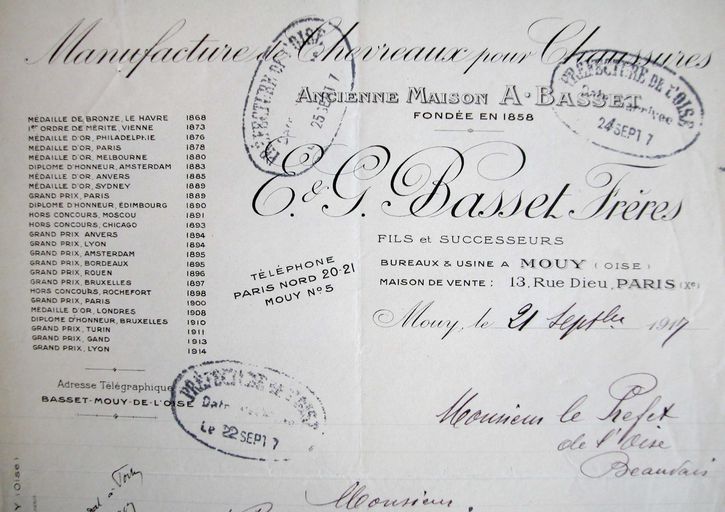 Manufacture de Chevreaux pour Chaussures
ANCIENNE MAISON A. BASSET
FONDÉE EN 1858
E. & G. Basset Frères
FILS et SUCCESSEURS
BUREAUX & USINE A MOUY (OISE)
MAISON DE VENTE: 13, Rue Dieu, PARIS (Xe)
TÉLÉPHONE
PARIS NORD 20-21
MOUY No 5
MÉDAILLE DE BRONZE, LE HAVRE 1868
1er ORDRE DE MÉRITE, VIENNE 1873
MÉDAILLE D'OR, PHILADELPHIE 1876
MÉDAILLE D'OR, PARIS 1878
MÉDAILLE D'OR, MELBOURNE 1880
DIPLOME D'HONNEUR, AMSTERDAM 1883
MÉDAILLE D'OR, ANVERS 1885
MÉDAILLE D'OR, SYDNEY 1889
GRAND PRIX, PARIS 1889
DIPLOME D'HONNEUR, ÉDIMBOURG 1890
HORS CONCOURS, MOSCOU 1891
HORS CONCOURS, CHICAGO 1893
GRAND PRIX ANVERS 1894
GRAND PRIX, LYON 1894
GRAND PRIX, AMSTERDAM 1895
GRAND PRIX, BORDEAUX 1895
GRAND PRIX, ROUEN 1896
GRAND PRIX, BRUXELLES 1897
HORS CONCOURS, ROCHEFORT 1898
GRAND PRIX, PARIS 1900
MÉDAILLE D'OR, LONDRES 1908
DIPLOME D'HONNEUR, BRUXELLES 1910
GRAND PRIX, TURIN 1911
GRAND PRIX, GAND 1913
GRAND PRIX, LYON 1914
Adresse Télégraphique
BASSET-MOUY-DE-L'OISE
PRÉFECTURE DE L'OISE
Date
25 SEPT 7
PRÉFECTURE DE L'OISE
Date d'arrivée
24 SEPT 7
PRÉFECTURE DE L'OISE
Date
Le 22 SEPT 7
Mouy, le 21 Septbre 1917
Monsieur le Préfet
de l'Oise
Beauvais
Monsieur,
Y (OISE)